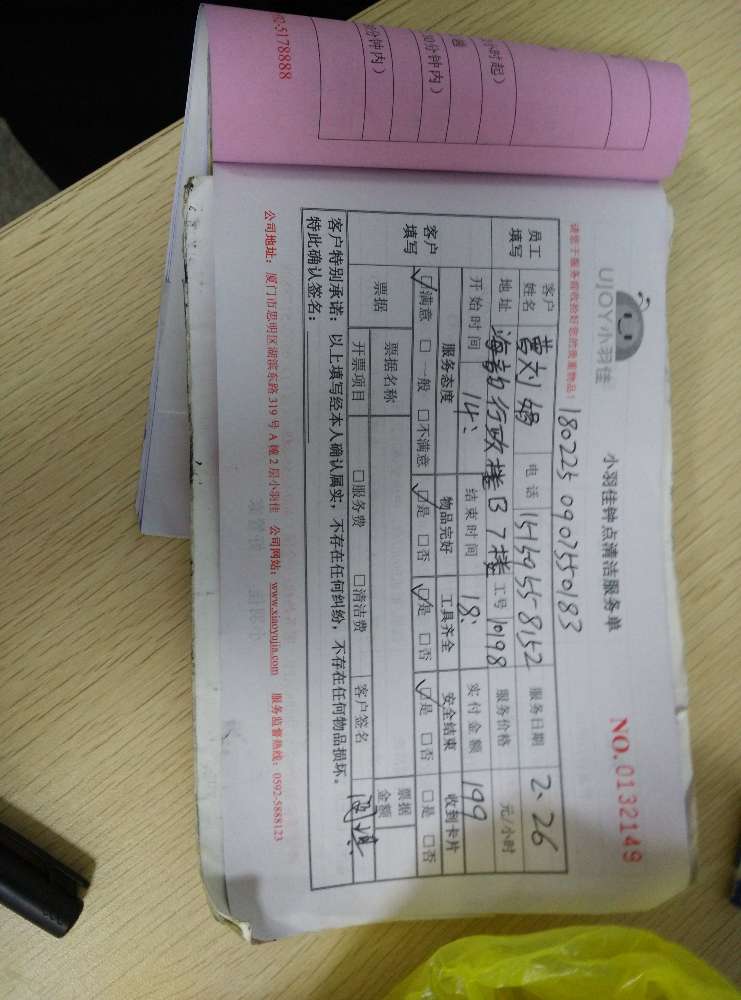 UJOY小羽佳
小羽佳钟点清洁服务单
NO.0132149
请您于服务前收拾好您的贵重物品!
1802250907550183
员工填写 客户姓名 电话 服务日期 2、26
地址 海韵行政楼B7楼 工号 10198 服务价格 元/小时
开始时间 14: 结束时间 18: 实付金额 199
客户填写 服务态度 物品完好 工具齐全 安全结束 收到卡片
☑满意 □一般 □不满意 ☑是 □否 ☑是 □否 ☑是 □否 □是 □否
票据 票据名称 票据金额
开票项目 □服务费 □清洁费 客户签名
客户特别承诺:以上填写经本人确认属实,不存在任何纠纷,不存在任何物品损坏。
特此确认签名:
公司地址:厦门市思明区湖滨东路319号A幢2层小羽佳 公司网站:www.xiaoyujia.com 服务监督热线:0592-5888123
小时起)
0分钟内)
分钟内)
92-5178888